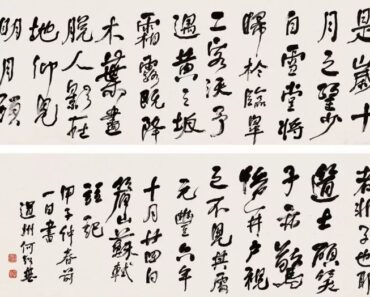 是歲十
月之望步
自雪堂將
歸於臨皋
二客從予
過黃之坂
霜露既降
木葉盡
脫人影在
地仰見
明月顧
者非子也耶
道士顧笑
予亦驚
悟開戶視
之不見其處
元豐六年
十月廿四日
眉山蘇軾
記
甲子仲春前
一日書
道州何紹基